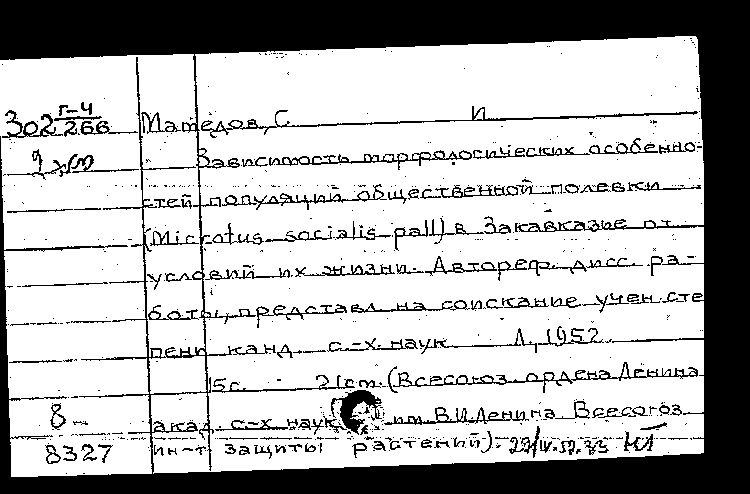 302 Г-4/266 Мамедов, С. И
2 экз Зависимость морфологических особенно-
стей популяций общественной полевки
(Microtus socialis pall) в Закавказье от
условий их жизни. Автореф. дисс. ра-
боты, представл на соискание учен. сте
пени канд. с.-х. наук. Л., 1952.
15с. 21см. (Всесоюз. ордена Ленина
8- акад. с-х наук им. В.И.Ленина Всесоюз.
8327 ин-т защиты растений).